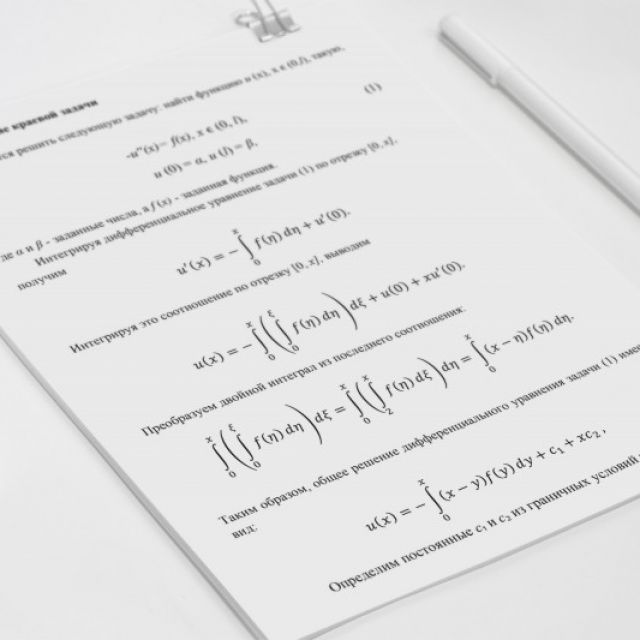 ие краевой задачи
тся решить следующую задачу: найти функцию u (x), x ϵ (0,l), такую,
-u''(x)= f(x), x ϵ (0, l), (1)
u (0) = α, u (l) = β,
де α и β - заданные числа, а f (x) - заданная функция.
Интегрируя дифференциальное уравнение задачи (1) по отрезку [0, x],
получим
u'(x) = − ∫₀ˣ f(η) dη + u'(0).
Интегрируя это соотношение по отрезку [0, x], выводим
u(x) = − ∫₀ˣ (∫₀^ξ f(η) dη) dξ + u(0) + xu'(0).
Преобразуем двойной интеграл из последнего соотношения:
∫₀ˣ (∫₀^ξ f(η) dη) dξ = ∫₀ˣ (∫₂ˣ f(η) dξ) dη = ∫₀ˣ (x − η)f(η) dη.
Таким образом, общее решение дифференциального уравнения задачи (1) имее
вид:
u(x) = − ∫₀ˣ (x − y)f(y) dy + c₁ + xc₂ ,
Определим постоянные c₁ и c₂ из граничных условий